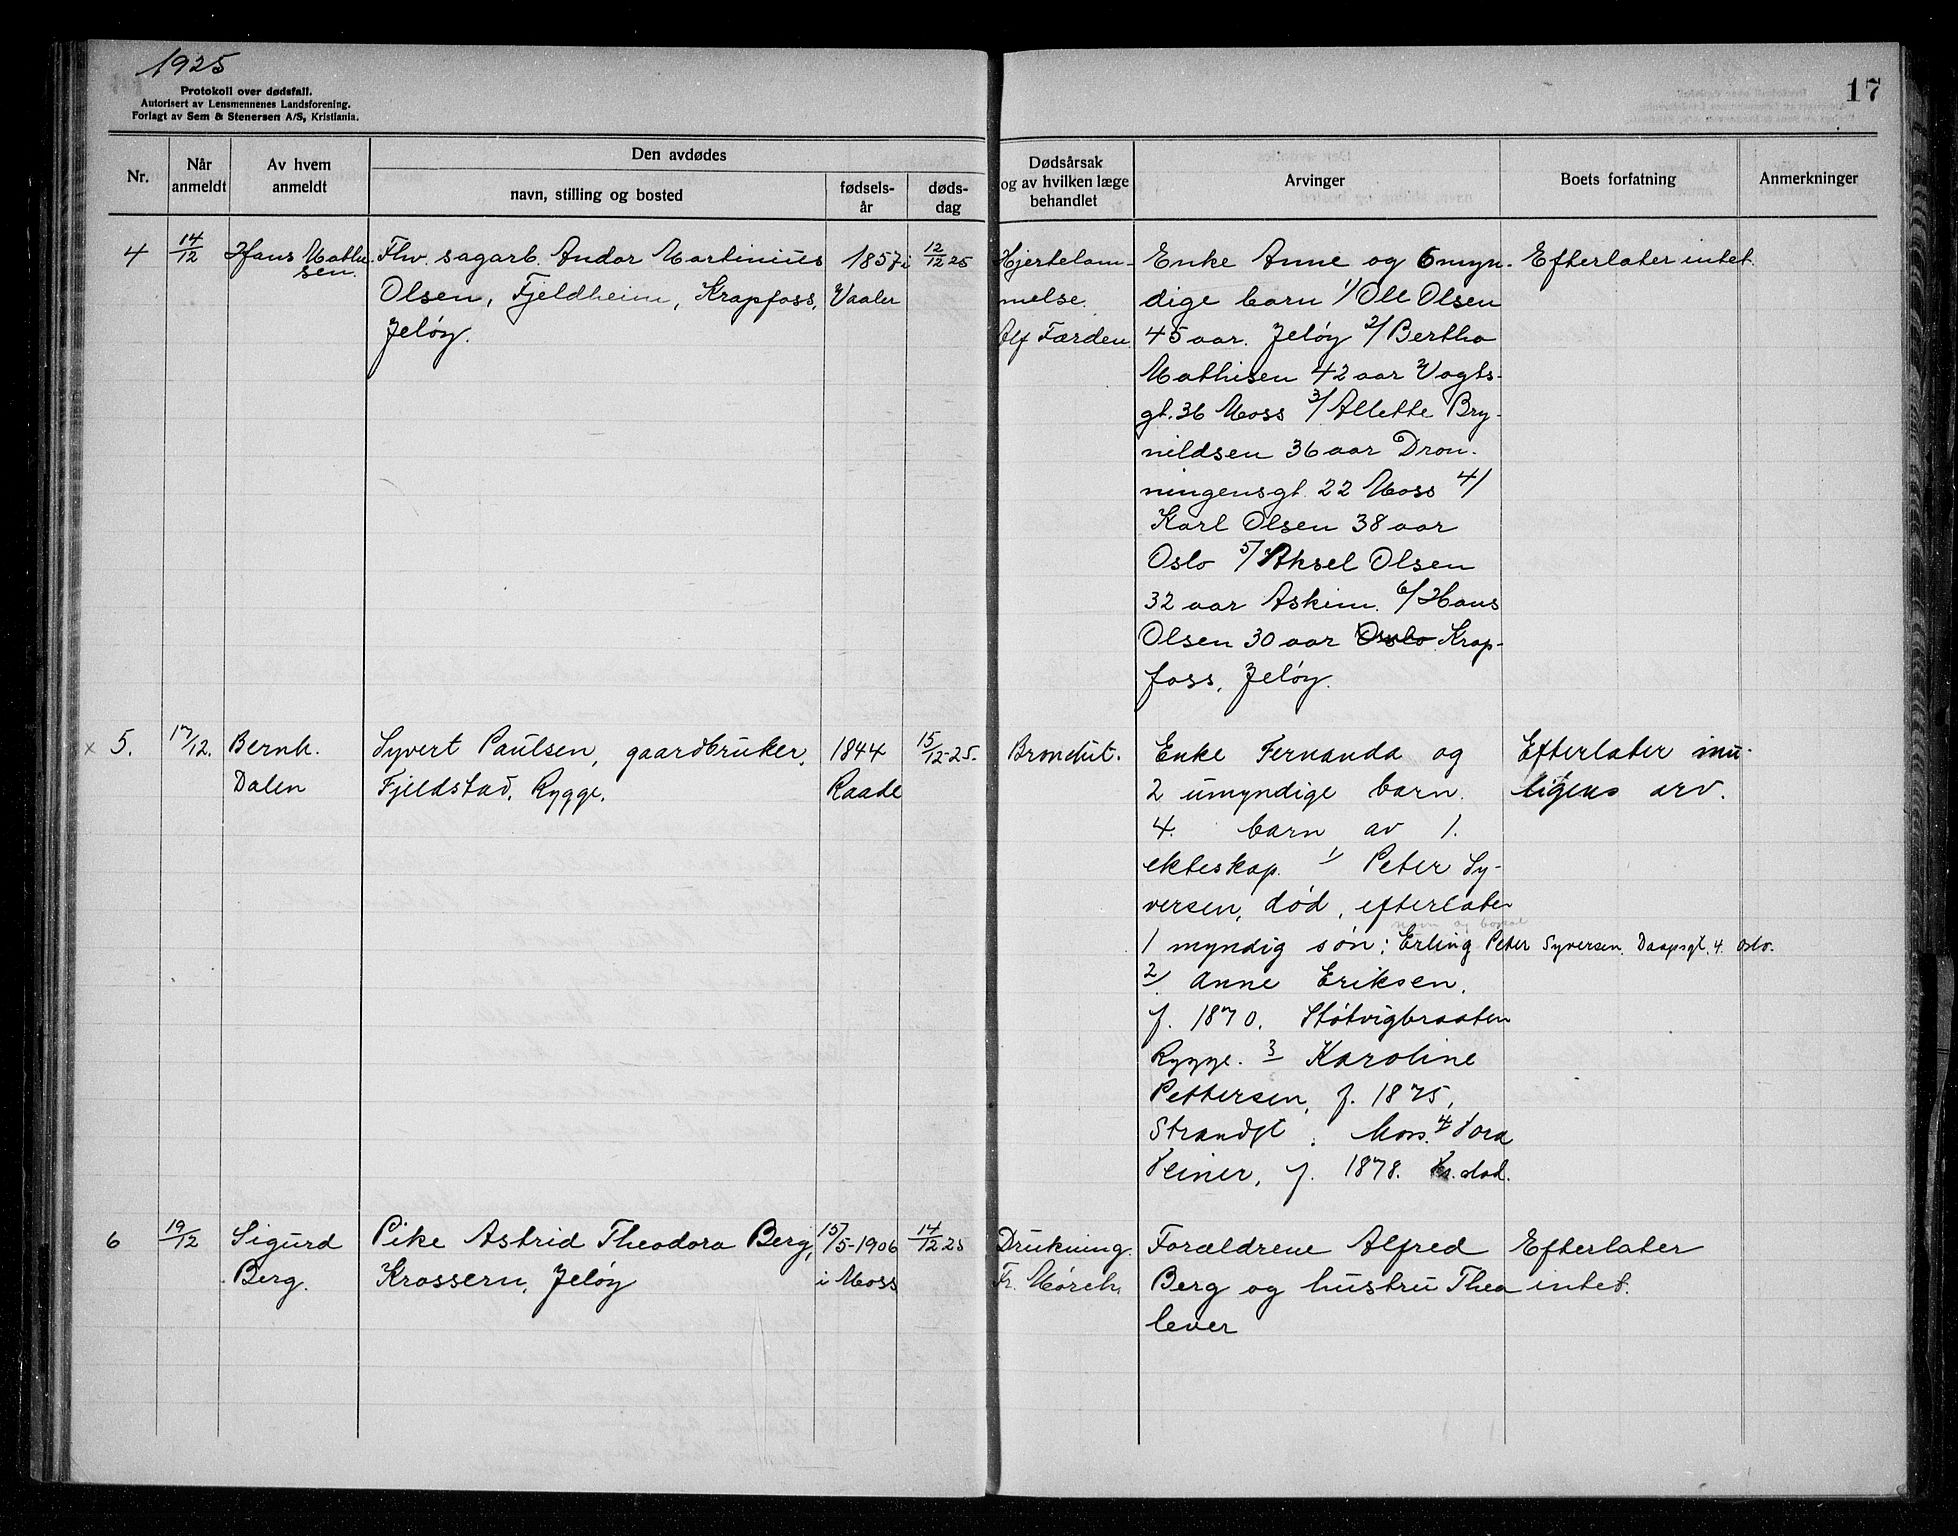 1925
Protokoll over dødsfall.
Autorisert av Lensmennenes Landsforening.
Forlagt av Sem & Stenersen A/S, Kristiania.
17
Nr.
Når anmeldt
Av hvem anmeldt
Den avdødes
navn, stilling og bosted
fødsels-år
døds-dag
Dødsårsak og av hvilken læge behandlet
Arvinger
Boets forfatning
Anmerkninger
4
14/12
Hans Mathi-
sen.
Fhv. sagarb. Andor Martinius
Olsen, Fjeldheim, Krapfoss,
Jeløy.
1857 i
Vaaler
12/12 25
Hjertelam-
melse.
Alf Færden.
Enke Anne og 6 myn-
dige barn 1/ Ole Olsen
45 aar. Jeløy 2/ Bertha
Mathisen 42 aar Vogts-
gt. 36 Moss 3/ Alette Bry-
nildsen 36 aar Dron-
ningensgt. 22 Moss 4/
Karl Olsen 38 aar
Oslo 5/ Aksel Olsen
32 aar Askim. 6/ Hans
Olsen 30 aar Oslo Krap-
foss, Jeløy.
Efterlater intet.
x 5.
17/12.
Bernh.
Dalen
Syvert Paulsen, gaardbruker,
Fjeldstad, Rygge.
1844
Raade
15/12-25.
Bronchit.
Enke Fernanda og
2 umyndige barn.
4. barn av 1.
ekteskap. 1/ Peter Sy-
versen, død, efterlater
navn og bopæl
1 myndig søn: Erling Peter Syversen. Daapsgt. 4. Oslo.
2/ Anne Eriksen,
f. 1870. Støtvigbraaten
Rygge. 3 Karoline
Pettersen, f. 1875,
Strandgt. Moss. 4 Tora
Teiner, f. 1878. Er død.
Efterlater mu-
ligens arv.
6
19/12
Sigurd
Berg.
Pike Astrid Theodora Berg,
Krossern, Jeløy
15/5-1906
i Moss
14/12 25
Drukning.
Fr. Mørch,
Forældrene Alfred
Berg og hustru Thea
lever
Efterlater
intet.